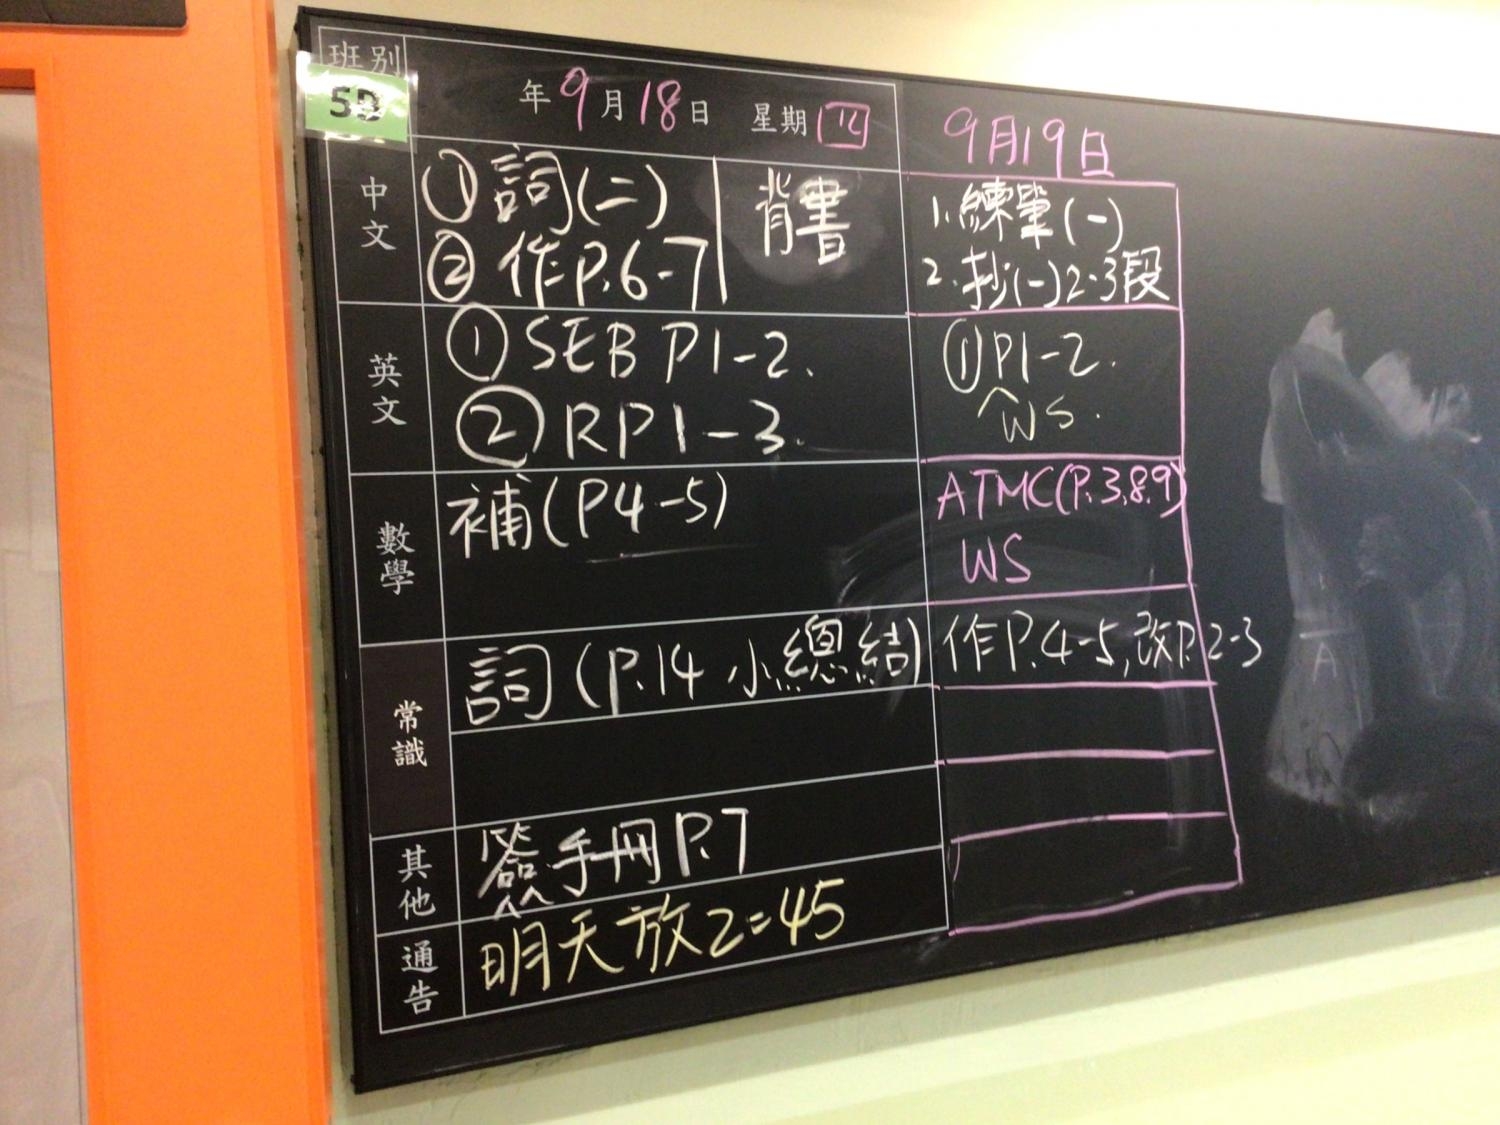 班別
5B
年9月18日 星期四
9月19日
中文
①詞(二)
②作P.6-7
背書
1.練筆(一)
2.抄(一)2-3段
英文
①SEB P1-2.
②RP1-3.
①P1-2.
WS.
數學
補(P4-5)
ATMC(P.3,8,9)
WS
常識
詞(P.14 小總結)
作P.4-5,改P.2-3
其他
簽手冊P.7
通告
明天放2=45